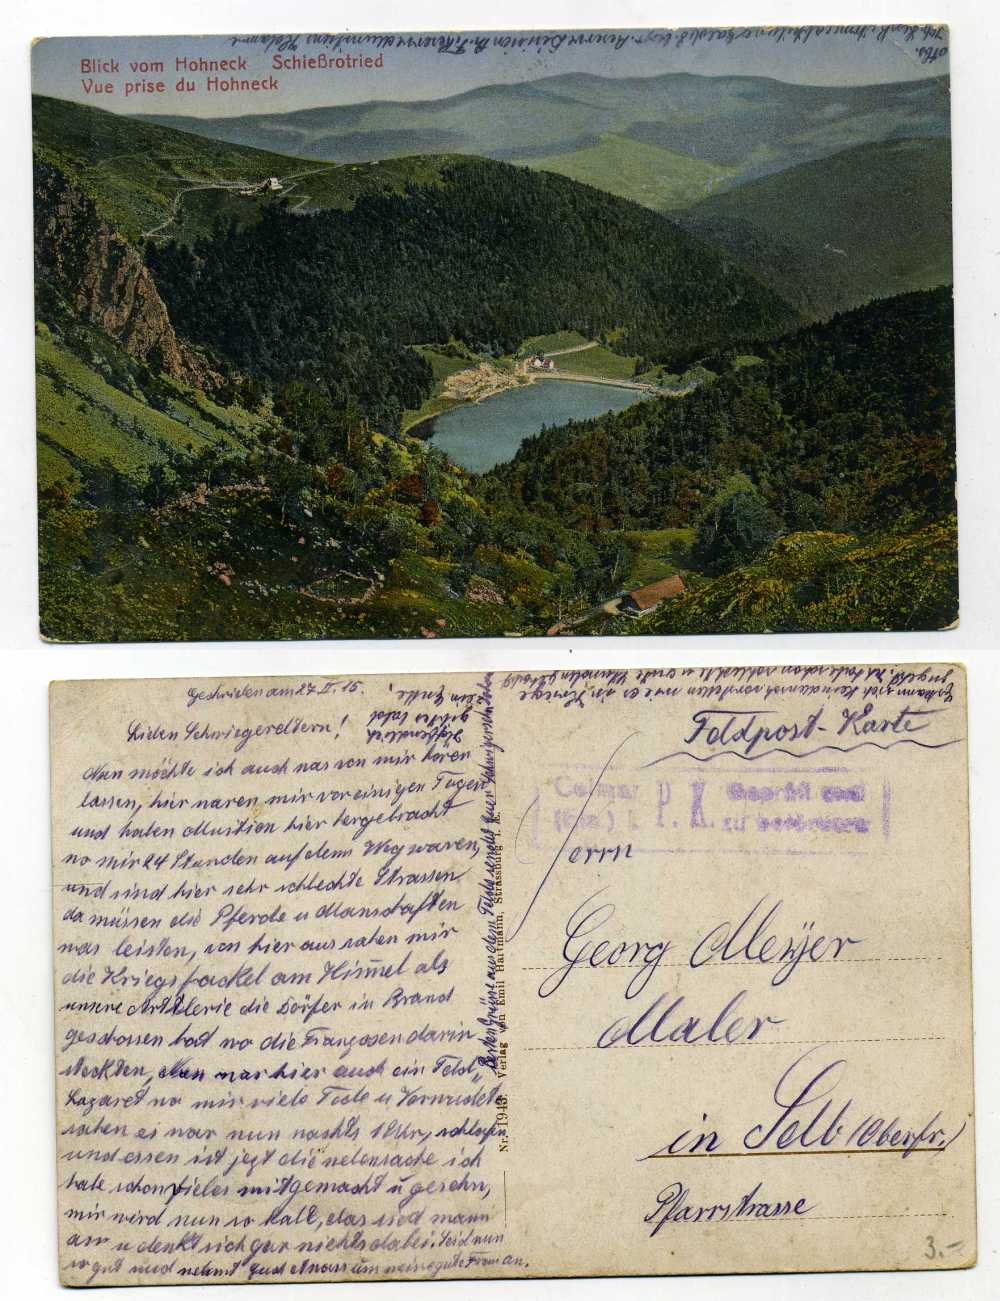 Blick vom Hohneck Schießrotried
Vue prise du Hohneck
Geschriben am 27. II. 15.
Lieben Schwiegereltern!
Nun möchte ich auch was von mir hören
lassen, hier waren mir vor einigen Tagen
und haben Munition hier hergebracht
wo mir 24 Stunden auf dem Weg waren,
und sind hier sehr schlechte Strassen
da müssen die Pferde u Manschaften
was leisten, von hier aus sahen mir
die Kriegsfackel am Himmel als
unsere Artilerie die Dörfer in Brand
geschossen hat wo die Franzosen darin
steckten, Nun war hier auch ein Feld
Lazaret wo mir viele Tode u Verwundete
sahen es war nun nachts 1 Uhr, schlafen
und essen ist jezt die nebensache ich
habe schon vieles mitgemacht u gesehn,
mir wird nun so kalt, das sied mann
an u denkt sich gar nichts dabei. Seid nun
so gut und nehmt Euch etwas um meine gute Frau an.
Besten Grüsse aus dem Felde sendet euer Schwigersohn
Nr. 1943. Verlag von Emil Hartmann, Strassburg i. E.
Feldpost-Karte
Colmar
(Els.) P. K. Geprüft und
zu befördern
Herrn
Georg Meyer
Maler
in Selb (Oberfr.)
Pfarrstrasse
3.-